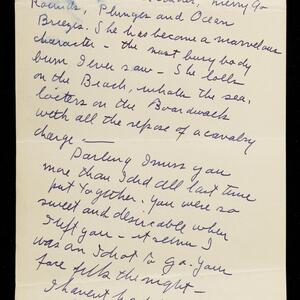 merry go
Rounds, Plunges and Ocean
Breezes. She has become a marvelous
character - the most busy body
bum I ever saw - She lolls
on the Beach, inhales the sea,
loiters on the Boardwalk
with all the repose of a cavalry
charge —
Darling I miss you
more than I did all last time
put together. You were so
sweet and desireable when
I left you - it seems I
was an idiot to go. Your
face fills the night -
I haven't